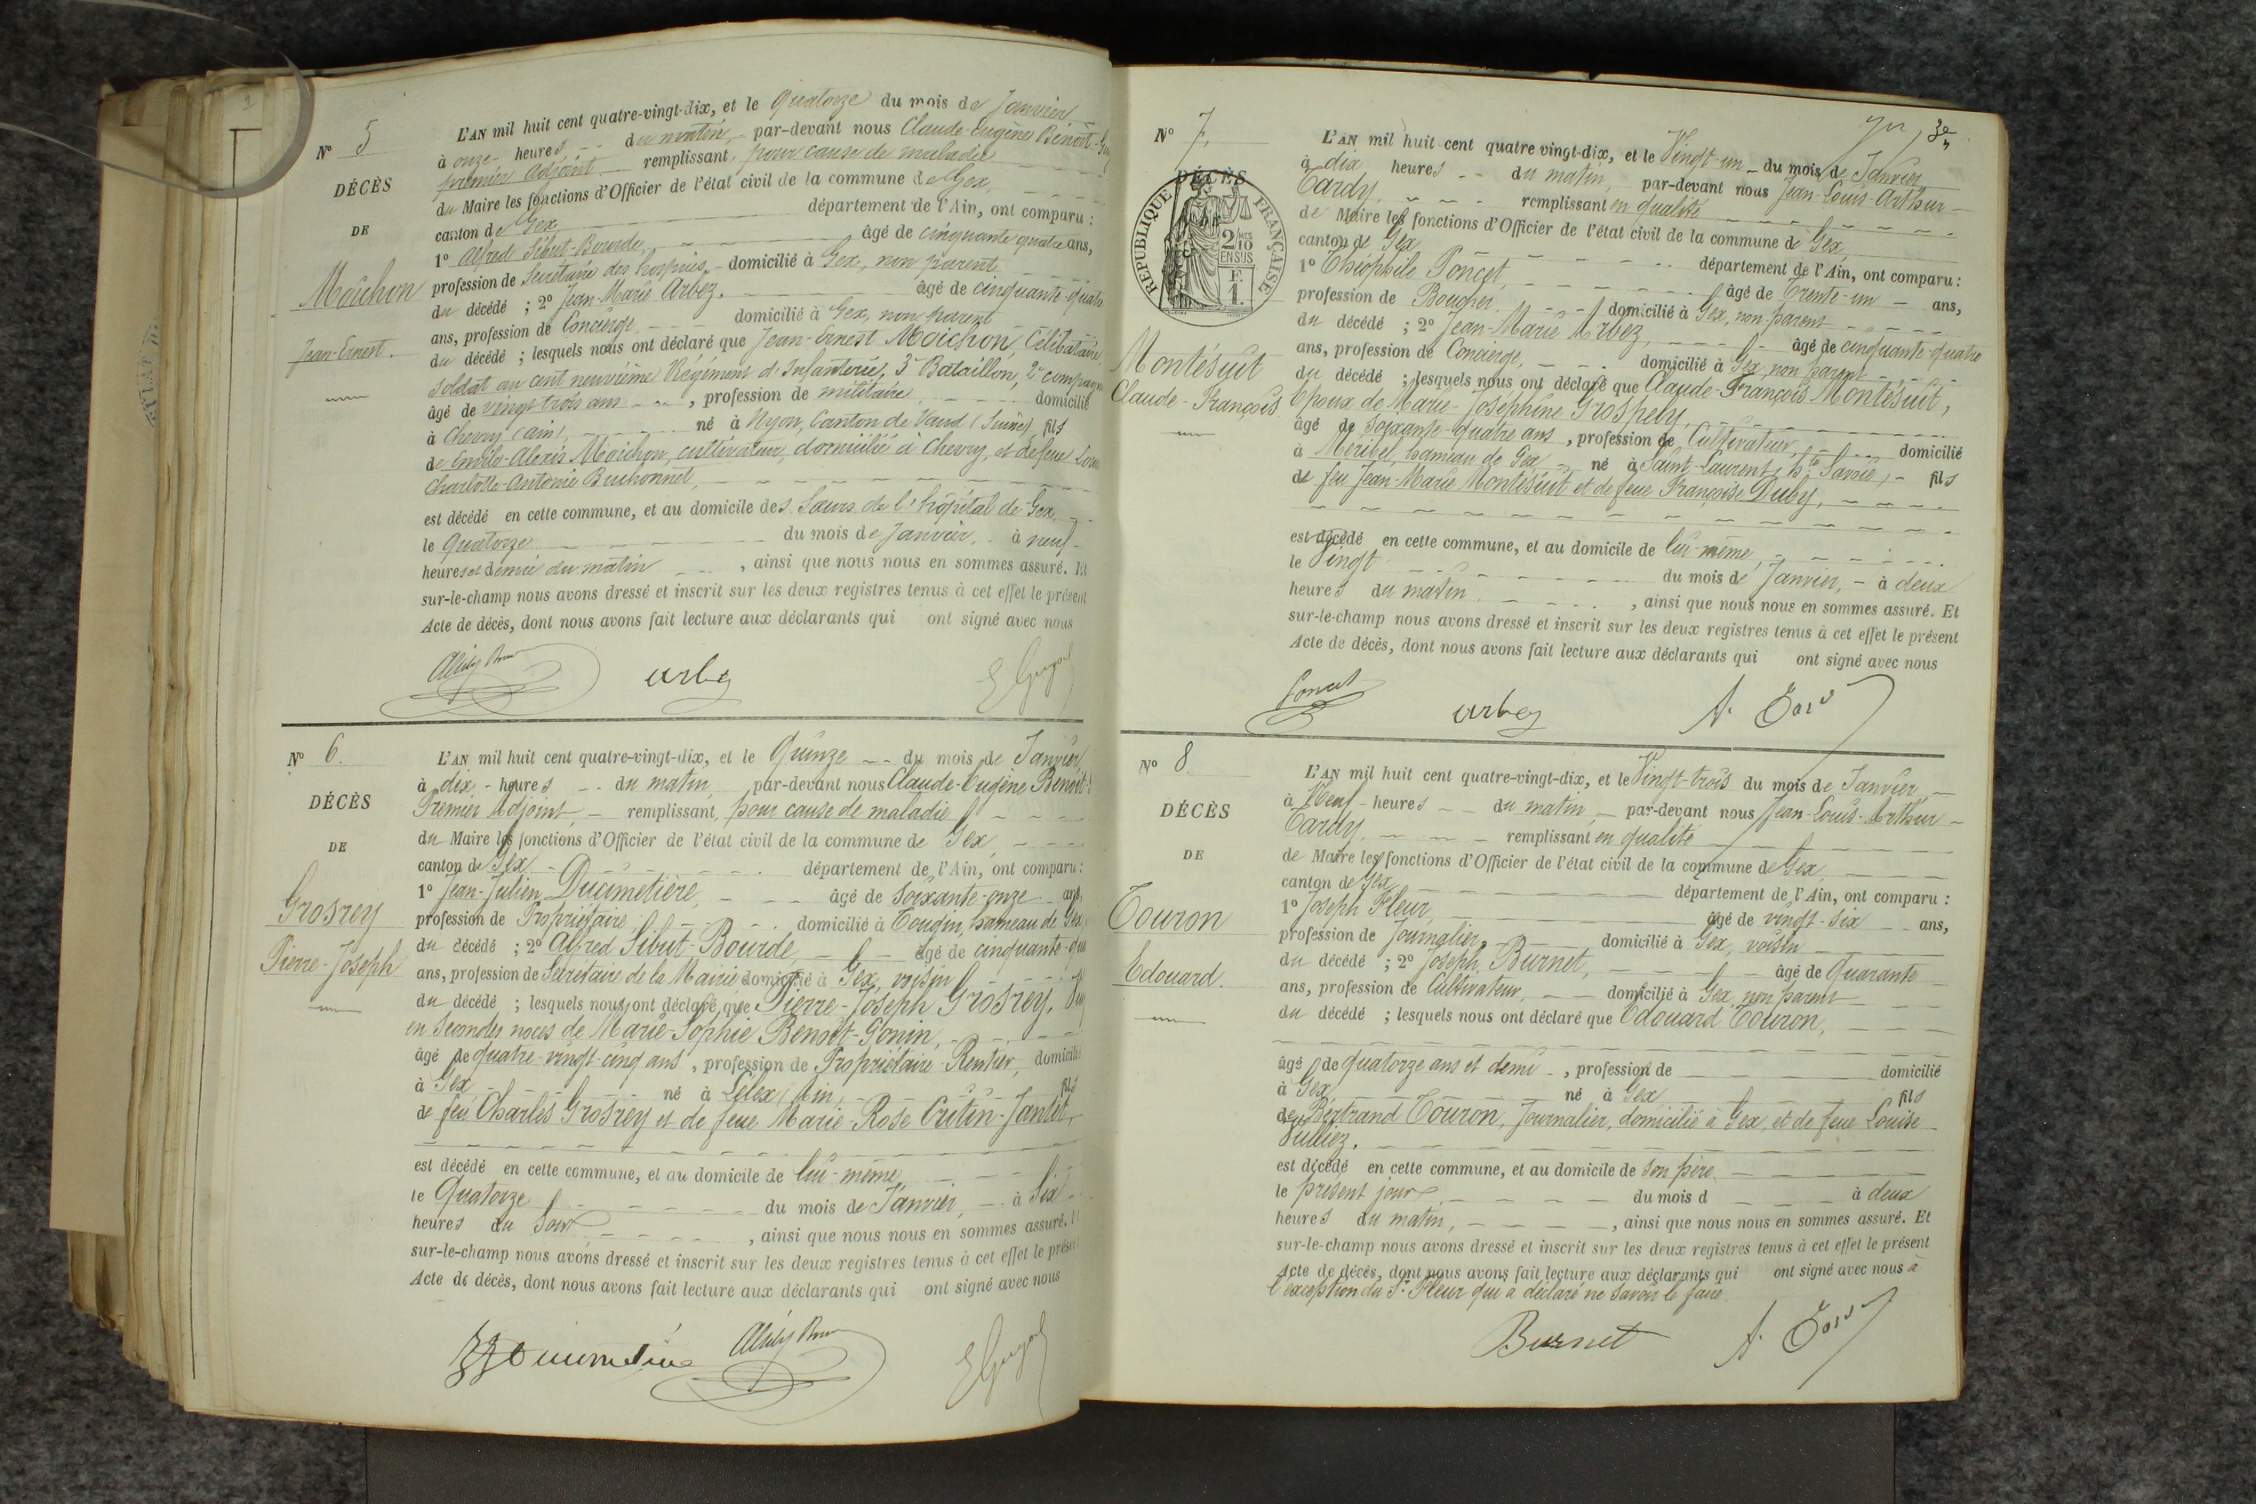 2
N° 5
DÉCÈS
DE
Moichon
Jean-Ernest.
L'AN mil huit cent quatre-vingt-dix, et le Quatorze du mois de Janvier
à onze heures du matin, par-devant nous Claude-Eugène Benoit-
premier adjoint remplissant, pour cause de maladie
du Maire les fonctions d'Officier de l'état civil de la commune de Gex,
canton de Gex département de l'Ain, ont comparu :
1° Alfred Sibut-Bourde, âgé de cinquante quatre ans,
profession de Secrétaire des hospices, domicilié à Gex, non parent
du décédé ; 2° Jean-Marie Arbez, âgé de cinquante-quatre
ans, profession de Concierge domicilié à Gex, non parent
du décédé ; lesquels nous ont déclaré que Jean-Ernest Moichon, Célibataire
soldat au cent neuvième Régiment d'Infanterie, 3e Bataillon, 2e compagnie
âgé de vingt trois ans, profession de militaire domicilié
à Chevry (ain), né à Nyon, Canton de Vaud (Suisse) fils
de Emile-Alexis Moichon, cultivateur, domicilié à Chevry, et de feue
Charlotte-Antonie
est décédé en cette commune, et au domicile des Sœurs de l'hôpital de Gex,
le Quatorze du mois de Janvier, à neuf
heures et demie du matin, ainsi que nous nous en sommes assuré. Et
sur-le-champ nous avons dressé et inscrit sur les deux registres tenus à cet effet le présent
Acte de décès, dont nous avons fait lecture aux déclarants qui ont signé avec nous
Arbez
N° 6.
DÉCÈS
DE
Grosrey
Pierre-Joseph
L'AN mil huit cent quatre-vingt-dix, et le Quinze du mois de Janvier,
à dix heures du matin, par-devant nous Claude-Eugène Benoit-
Premier Adjoint, remplissant, pour cause de maladie
du Maire les fonctions d'Officier de l'état civil de la commune de Gex,
canton de Gex département de l'Ain, ont comparu :
1° Jean-Julien Ducimetière, âgé de soixante-onze ans,
profession de Propriétaire domicilié à Tougin, hameau de Gex,
du décédé ; 2° Alfred Sibut-Bourde, âgé de cinquante-
ans, profession de Secrétaire de la Mairie domicilié à Gex, voisin
du décédé ; lesquels nous ont déclaré que Pierre-Joseph Grosrey,
en secondes noces de Marie-Sophie Benoit-Gonin,
âgé de quatre-vingt-cinq ans, profession de Propriétaire-Rentier, domicilié
à Gex né à Lélex (Ain, fils
de feu Charles Grosrey et de feue Marie-Rose Critin-Jantet,
est décédé en cette commune, et au domicile de lui-même,
le Quatorze du mois de Janvier, à Six
heures du soir, ainsi que nous nous en sommes assuré. Et
sur-le-champ nous avons dressé et inscrit sur les deux registres tenus à cet effet le présent
Acte de décès, dont nous avons fait lecture aux déclarants qui ont signé avec nous
N° 7.
DÉCÈS
RÉPUBLIQUE FRANÇAISE
2/10
EN SUS
F
1.
Montésuit
Claude-François
L'AN mil huit cent quatre vingt-dix, et le Vingt-un du mois de Janvier
à dix heures du matin, par-devant nous Jean-Louis-Arthur
Tardy, remplissant en qualité
de Maire les fonctions d'Officier de l'état civil de la commune de Gex,
canton de Gex département de l'Ain, ont comparu :
1° Théophile Poncet, âgé de Trente-un ans,
profession de Boucher domicilié à Gex, non parent
du décédé ; 2° Jean-Marie Arbez, âgé de cinquante-quatre
ans, profession de Concierge, domicilié à Gex, non parent
du décédé ; lesquels nous ont déclaré que Claude-François Montésuit,
Epoux de Marie-Joséphine
âgé de soixante-quatre ans, profession de Cultivateur, domicilié
à Méribel, hameau de Gex né à Saint-Laurent, hte Savoie, fils
de feu Jean-Marie Montésuit et de feue Françoise Duby,
est décédé en cette commune, et au domicile de lui-même,
le Vingt du mois de Janvier, à deux
heures du matin, ainsi que nous nous en sommes assuré. Et
sur-le-champ nous avons dressé et inscrit sur les deux registres tenus à cet effet le présent
Acte de décès, dont nous avons fait lecture aux déclarants qui ont signé avec nous
Poncet Arbez A. Tardy
N° 8.
DÉCÈS
DE
Touron
Edouard.
L'AN mil huit cent quatre-vingt-dix, et le Vingt-trois du mois de Janvier,
à Neuf heures du matin, par-devant nous Jean-Louis-Arthur
Tardy, remplissant en qualité
de Maire les fonctions d'Officier de l'état civil de la commune de Gex,
canton de Gex département de l'Ain, ont comparu :
1° Joseph Fleur, âgé de vingt-six ans,
profession de Journalier, domicilié à Gex, voisin
du décédé ; 2° Joseph Burnet, âgé de Quarante
ans, profession de Cultivateur, domicilié à Gex, non parent
du décédé ; lesquels nous ont déclaré que Edouard Touron,
âgé de quatorze ans et demi, profession de domicilié
à Gex né à Gex fils
de Bertrand Touron, Journalier, domicilié à Gex, et de feue Louise
Vulliez.
est décédé en cette commune, et au domicile de son père
le présent jour du mois d à deux
heures du matin, ainsi que nous nous en sommes assuré. Et
sur-le-champ nous avons dressé et inscrit sur les deux registres tenus à cet effet le présent
Acte de décès, dont nous avons fait lecture aux déclarants qui ont signé avec nous à
l'exception du Sr Fleur qui a déclaré ne savoir le faire
Burnet A. Tardy